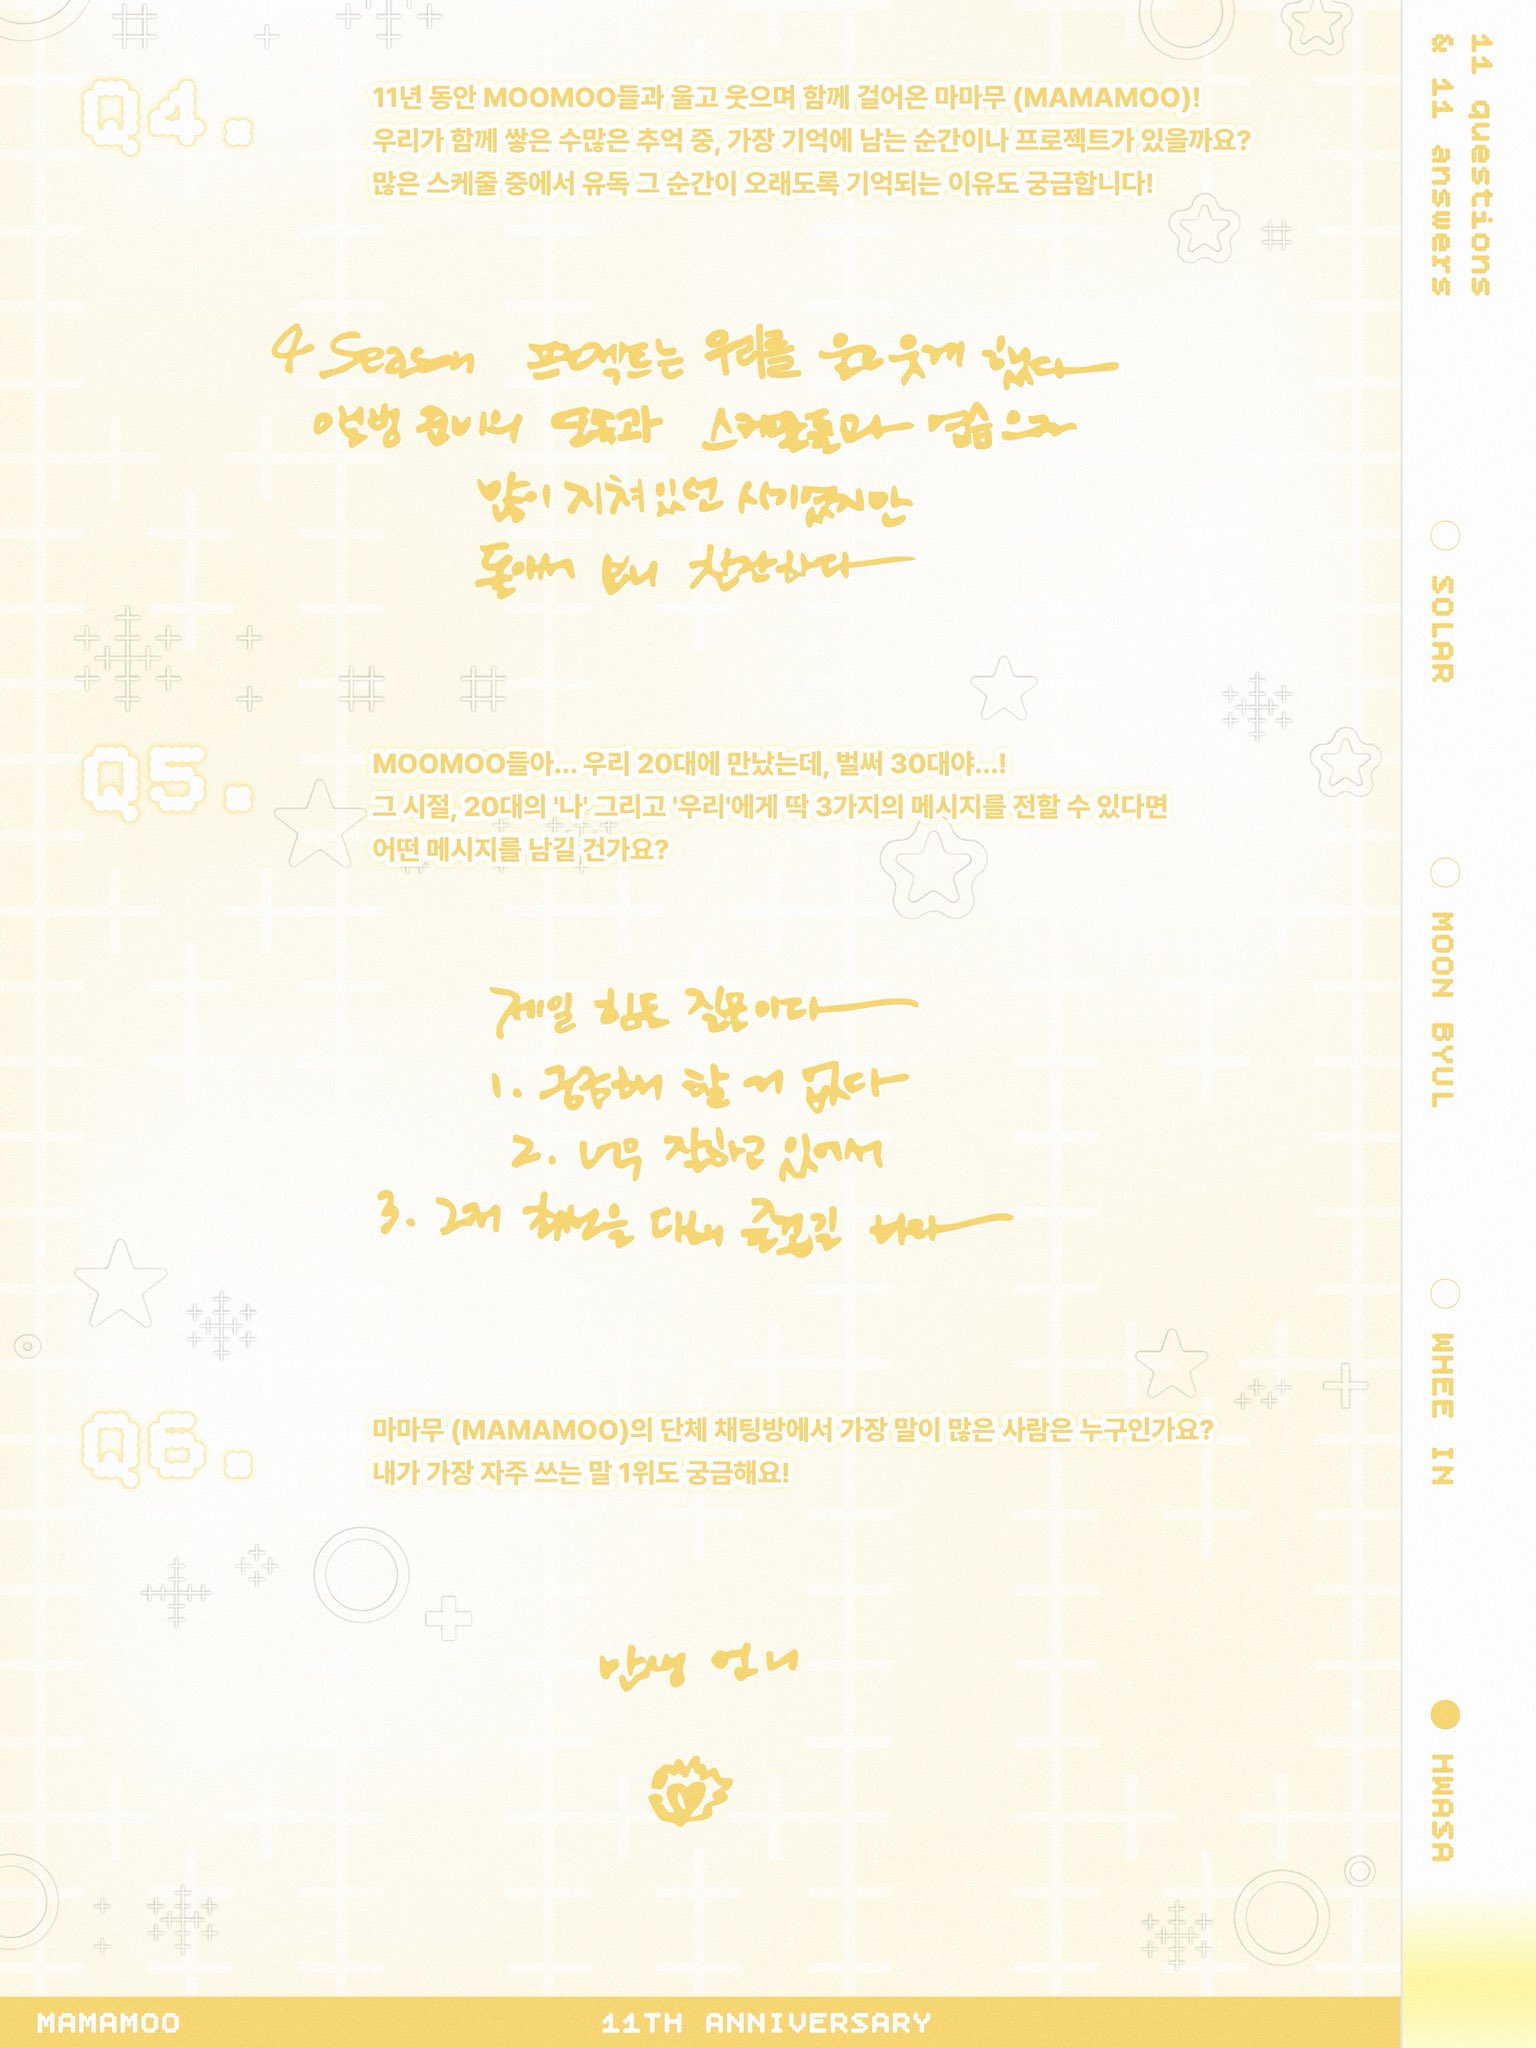 11 questions
& 11 answers
Q4.
11년 동안 MOOMOO들과 울고 웃으며 함께 걸어온 마마무 (MAMAMOO)!
우리가 함께 쌓은 수많은 추억 중, 가장 기억에 남는 순간이나 프로젝트가 있을까요?
많은 스케줄 중에서 유독 그 순간이 오래도록 기억되는 이유도 궁금합니다!
4 Season 프로젝트는 우리를 울고 웃게 했다
앨범 준비의 몰두과 스케줄들과 연습으로
많이 지쳐있던 시기였지만
돌아봐 보니 찬란하다
Q5.
MOOMOO들아... 우리 20대에 만났는데, 벌써 30대야...!
그 시절, 20대의 '나' 그리고 '우리'에게 딱 3가지의 메시지를 전할 수 있다면
어떤 메시지를 남길 건가요?
제일 힘든 질문이다
1. 궁금해 할 거 없다
2. 너무 잘하고 있어서
3. 그저 최선을 다해 즐기길 바라
Q6.
마마무 (MAMAMOO)의 단체 채팅방에서 가장 말이 많은 사람은 누구인가요?
내가 가장 자주 쓰는 말 1위도 궁금해요!
언니
SOLAR
MOON BYUL
WHEE IN
HWASA
MAMAMOO
11TH ANNIVERSARY